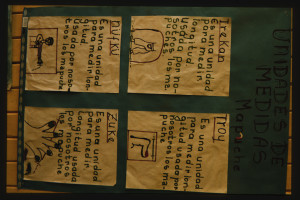 UNIDADES DE
MEDIDAS
Mapuche
Trekan
Es una unidad
para medir
longitud
usada por no-
sotros los ma-
puches
Es una unidad
para medir lon-
gitud usada por
nosotros los ma-
puche
Es una unidad
para medir lon-
gitud
usada por noso-
tros los mapuche
Es una unidad
para medir
longitud usada
por nosotros
los mapuche